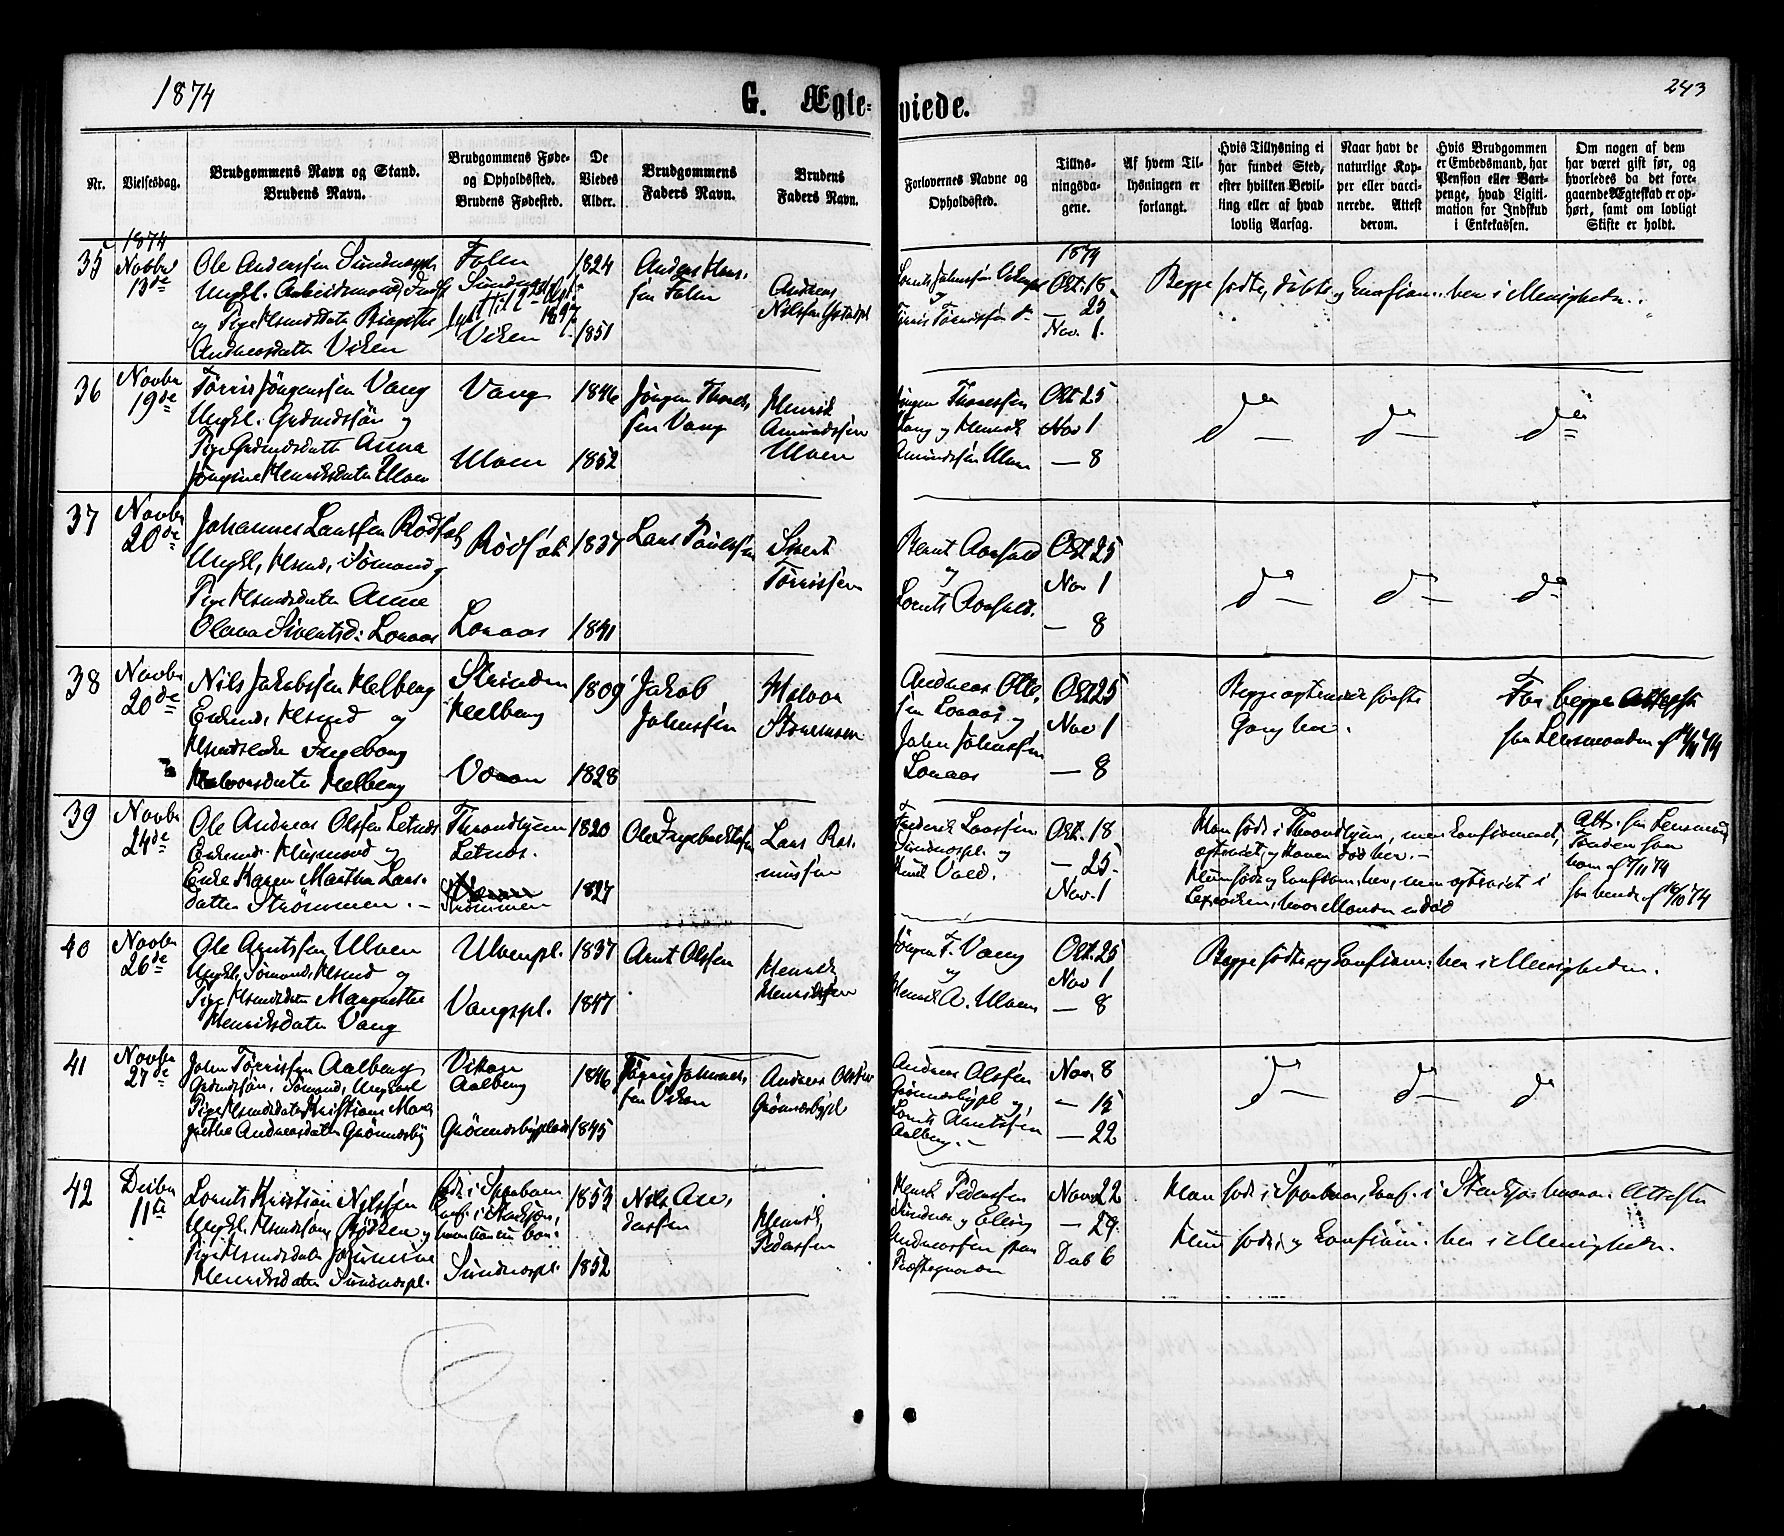 1874
G. Ægte-
viede.
243
Nr.
Vielsesdag.
Brudgommens Navn og Stand.
Brudens Navn.
Brudgommens Føde-
og Opholdssted.
Brudens Fødested.
De
Viedes
Alder.
Brudgommens
Faders Navn.
Brudens
Faders Navn.
Forlovernes Navne og
Opholdssted.
Tillys-
ningsda-
gene.
Af hvem Til-
lysningen er
forlangt.
Hvis Tillysning ei
har fundet Sted,
efter hvilken Bevil-
ling eller af hvad
lovlig Aarsag.
Naar havt de
naturlige Kop-
per eller vacci-
nerede. Attest
derom.
Hvis Brudgommen
er Embedsmand, har
Pension eller Vart-
penge, hvad Ligiti-
mation for Indskud
i Enkekassen.
Om nogen af dem
har været gift før, og
hvorledes da det fore-
gaaende Ægteskab er op-
hørt, samt om lovligt
Skifte er holdt.
35
1874
Novbr
13de
Ole Anderssen Sundnæspl
Ungkl. Arbeidsmand,
og Pige Hsmdsdatter Birgitha
Andreasdatter Viken
Folen
Viken
1824
1851
Anders Hans-
sen Folen
Andreas
Nilssen
1874
Okt. 18
— 25
Nov. 1.
Begge fødte, døbte og Konfirm. her i Menigheden.
36
Novbr
19de
Tørris Jörgenssen Vang
Ungkl. Grdmdssön og
Pige Grdmdsdatter Anna
Jörgine Henriksdatter Ulven
Vang
Ulven
1846
1852
Jörgen Thomas-
sen Vang
Henrik
Amundssen
Ulven
Jörgen Thomassen
Vang og Henrik
Amundssen Ulven
Okt 25
Nov 1
— 8
do —
do —
do =
37
Novbr
20de
Johannes Larssen Rödsöt
Ungkl, Hsmd, Sømand og
Pige Hsmdsdatter Anne
Olava Sivertsd: Lonaas
Rödsöt
Lonaas
1837
1841
Lars Paulssen
Sivert
Tørrissen
Bernt Aasfald
og
Lorents Aasfald.
Okt 25
Nov 1
— 8
do —
do —
do —
38
Novbr
20de
Nils Jakobssen Helberg
Enkemd, Hsmd og
Hsmdsenke Ingeborg
Halvorsdatter Helberg
Strinden
Helberg
1809
1828
Jakob
Johnssen
Halvor
Andreas Ole-
sen Lonaas og
John Johnssen
Lonaas
Okt 25
Nov 1
— 8
Begge ægteviede første
Gang her.
For begge Attester
fra Lensmanden af
39
Novbr
24de
Ole Andreas Olssen Letnes
Enkemd. Husmand og
Enke Karen Martha Lars-
datter Strömmen. —
Throndhjem
Letnes.
Strömmen
1820
1827
Ole Ingebrektsen
Lars Ras-
mussen
Frederik Larssen
Sundnæspl. og
Okt. 18
— 25.
Nov. 1
Han født i Throndhjem, men konfirmeret,
ægteviet og Konen død her. —
Hun født og konfirm. her, men ægteviet i
Lexviken, hvor Manden er død
Att. fra Lensmand
40
Novbr
26de
Ole Arntssen Ulven
Ungkl, Sømand, Hsmd og
Pige Hsmdsdatter Margrethe
Henriksdatter Vang
Ulvenpl.
Vangspl.
1837
1847
Arnt Olssen
Henrik
Henrikssen
Jörgen T. Vang
og
Henrik A. Ulven
Okt. 25
Nov 1
— 8
Begge fødte og Konfirm. her i Menigheden.
41
Novbr
27de
John Tørrissen Aalberg
Grdmdssön, Sømand, Ungkarl
Pige Hsmdsdatter Kristiane Mar-
grethe Andreasdatter Grönnesby
Viken
Aalberg
Grönnesbyplads
1846
1845
Tørris Johannes-
sen Viken
Andreas Olssen
Grönnesbypl
Andreas Olssen
Grönnesbypl og
Lorents Arntssen
Aalberg. —
Nov. 8
— 15
— 22
do —
do —
do
42
Decbr
11te
Lorents Kristian Nilssen
Ungkl. Hsmdssön, og
Pige Hsmdsdatter
Henriksdatter Sundnæspl.
Född i Sparbuen
Sundnæspl
1853
1852
Nils An-
derssen
Henrik
Pederssen
Henrik Pederssen
Sundnes og Elling
Andreassen fra
Nov. 22
— 29
Dcb 6
Han født i Sparbuen, konf. i Stenkjær, hvorom Attester
Hun født og Konfirm. her i Menigheden.